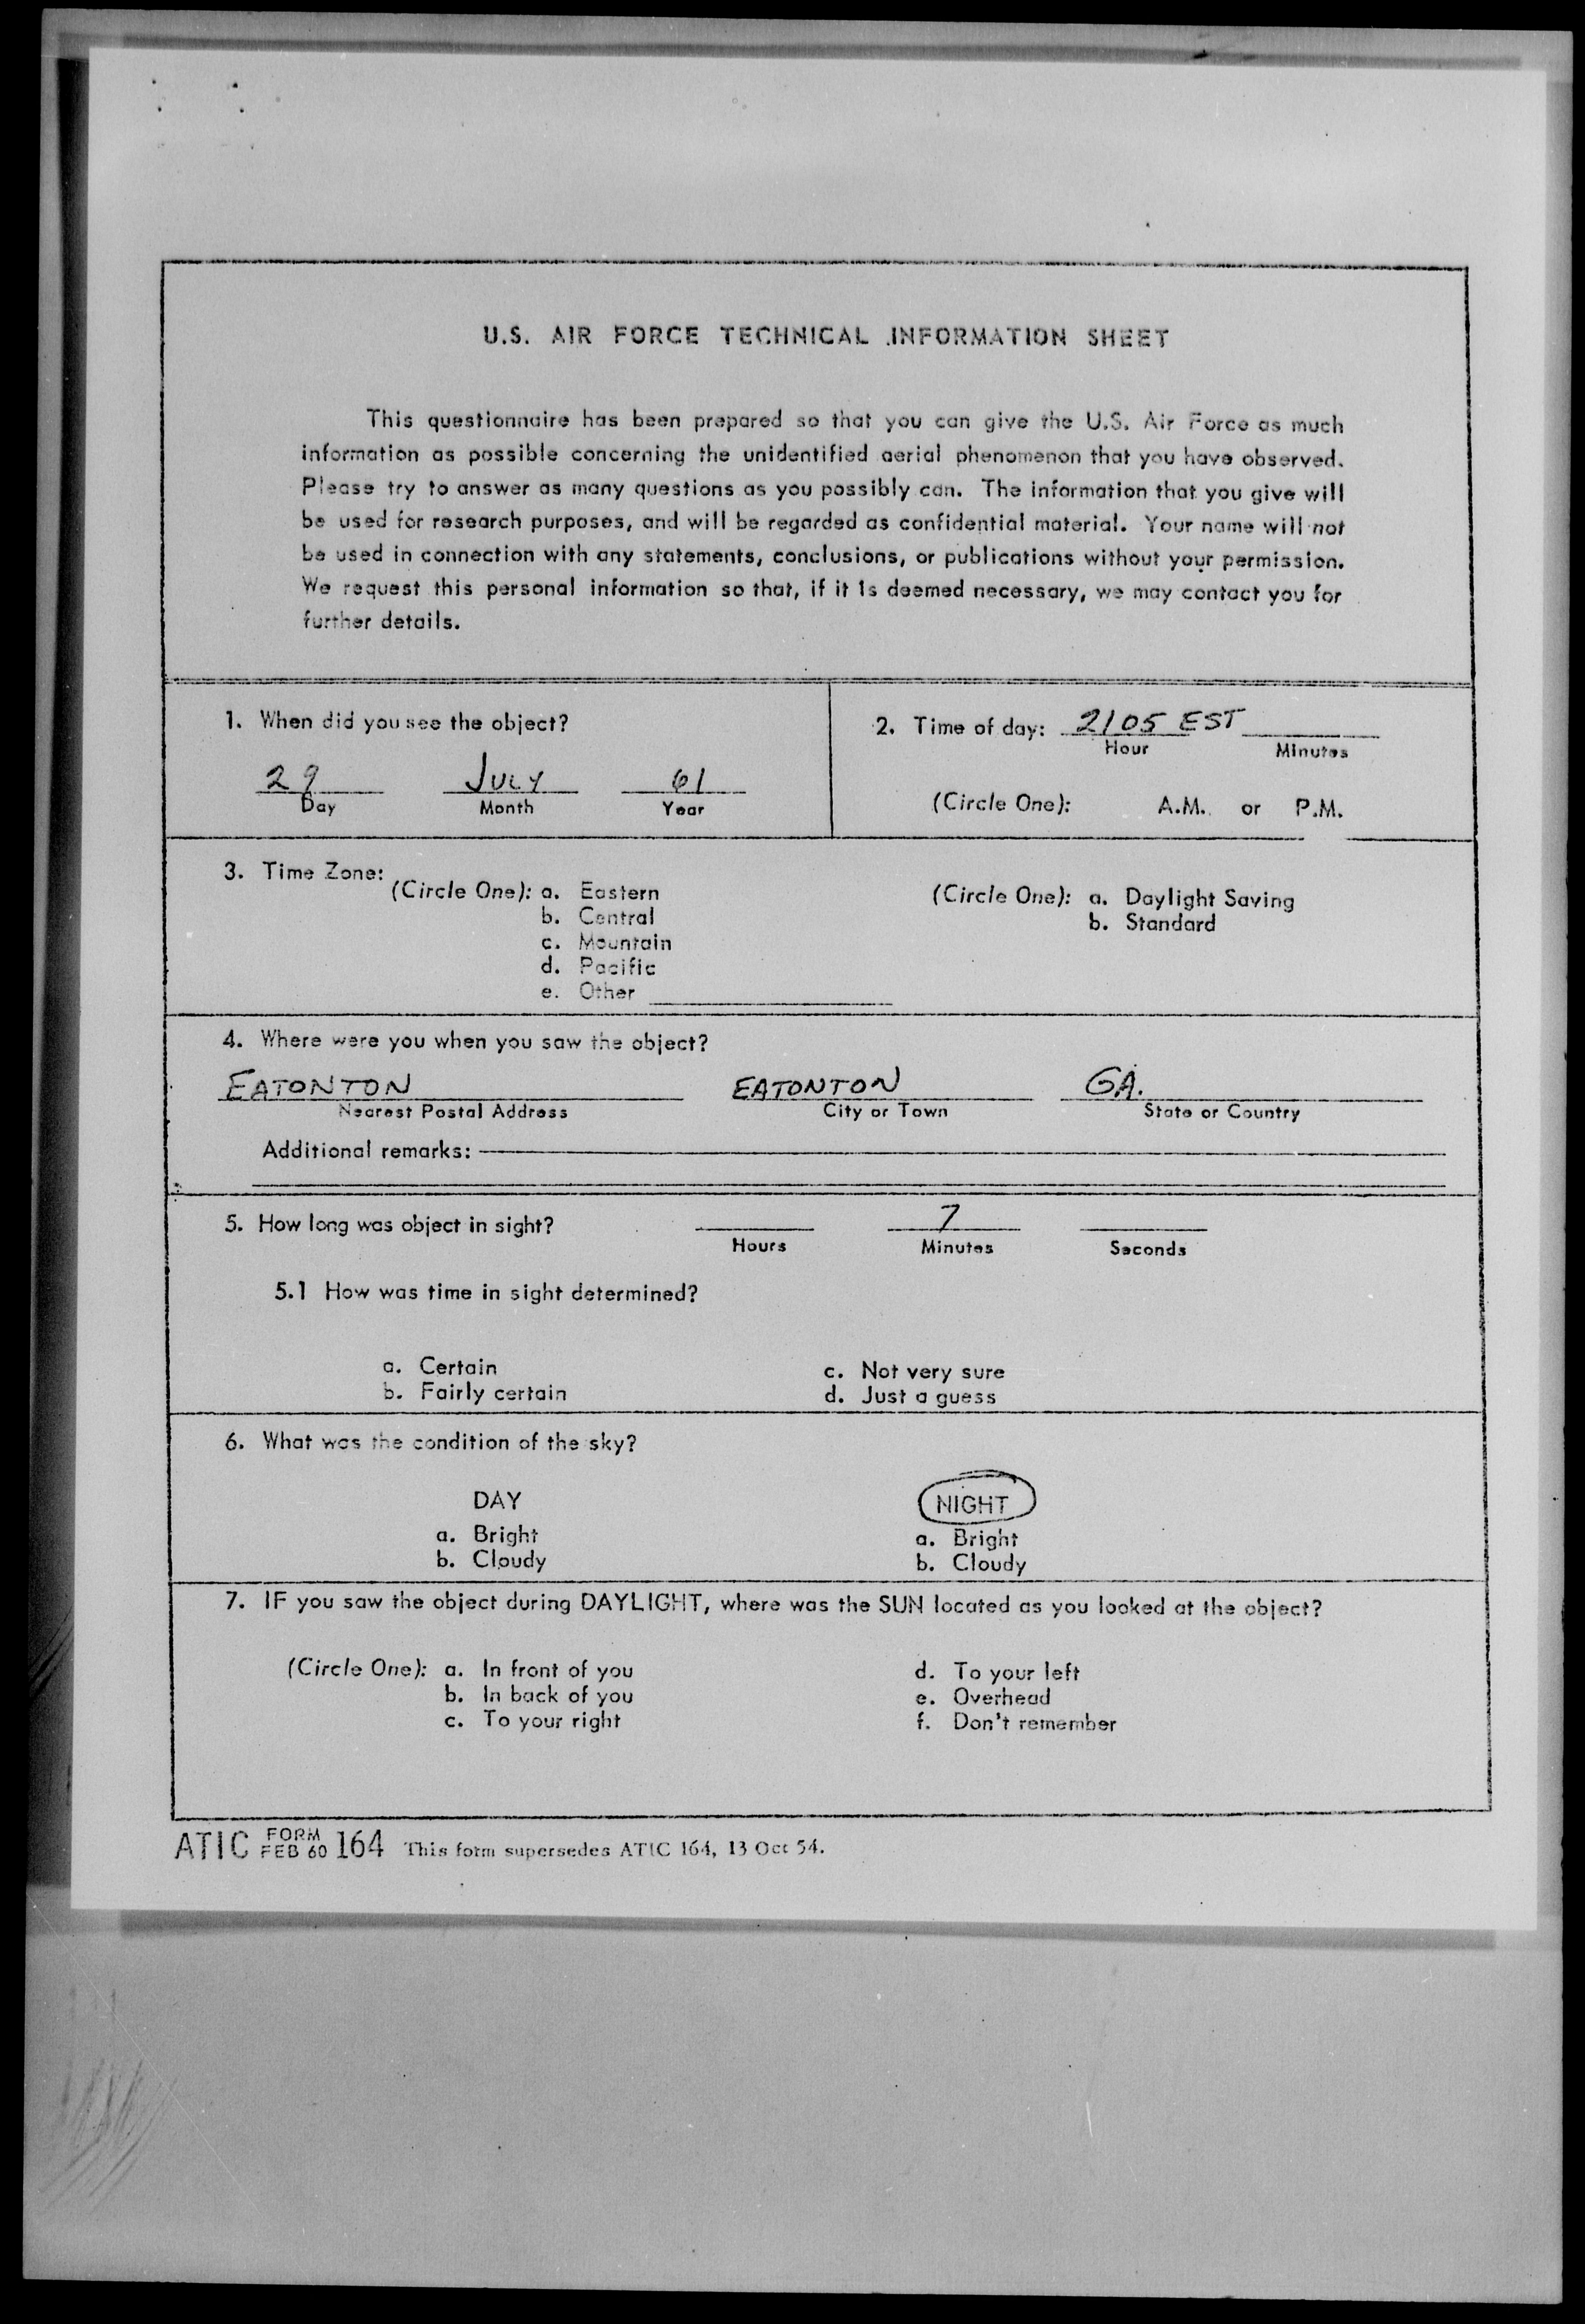 U.S. AIR FORCE TECHNICAL INFORMATION SHEET
This questionnaire has been prepared so that you can give the U.S. Air Force as much
information as possible concerning the unidentified aerial phenomenon that you have observed.
Please try to answer as many questions as you possibly can. The information that you give will
be used for research purposes, and will be regarded as confidential material. Your name will not
be used in connection with any statements, conclusions, or publications without your permission.
We request this personal information so that, if it is deemed necessary, we may contact you for
further details.
1. When did you see the object?
29 JULY 61
Day Month Year
2. Time of day: 2105 EST
Hour Minutes
(Circle One): A.M. or P.M.
3. Time Zone:
(Circle One): a. Eastern
b. Central
c. Mountain
d. Pacific
e. Other
(Circle One): a. Daylight Saving
b. Standard
4. Where were you when you saw the object?
EATONTON EATONTON GA.
Nearest Postal Address City or Town State or Country
Additional remarks:
5. How long was object in sight? 7
Hours Minutes Seconds
5.1 How was time in sight determined?
a. Certain
b. Fairly certain
c. Not very sure
d. Just a guess
6. What was the condition of the sky?
DAY
a. Bright
b. Cloudy
NIGHT
a. Bright
b. Cloudy
7. IF you saw the object during DAYLIGHT, where was the SUN located as you looked at the object?
(Circle One): a. In front of you
b. In back of you
c. To your right
d. To your left
e. Overhead
f. Don't remember
ATIC FORM FEB 60 164 This form supersedes ATIC 164, 13 Oct 54.